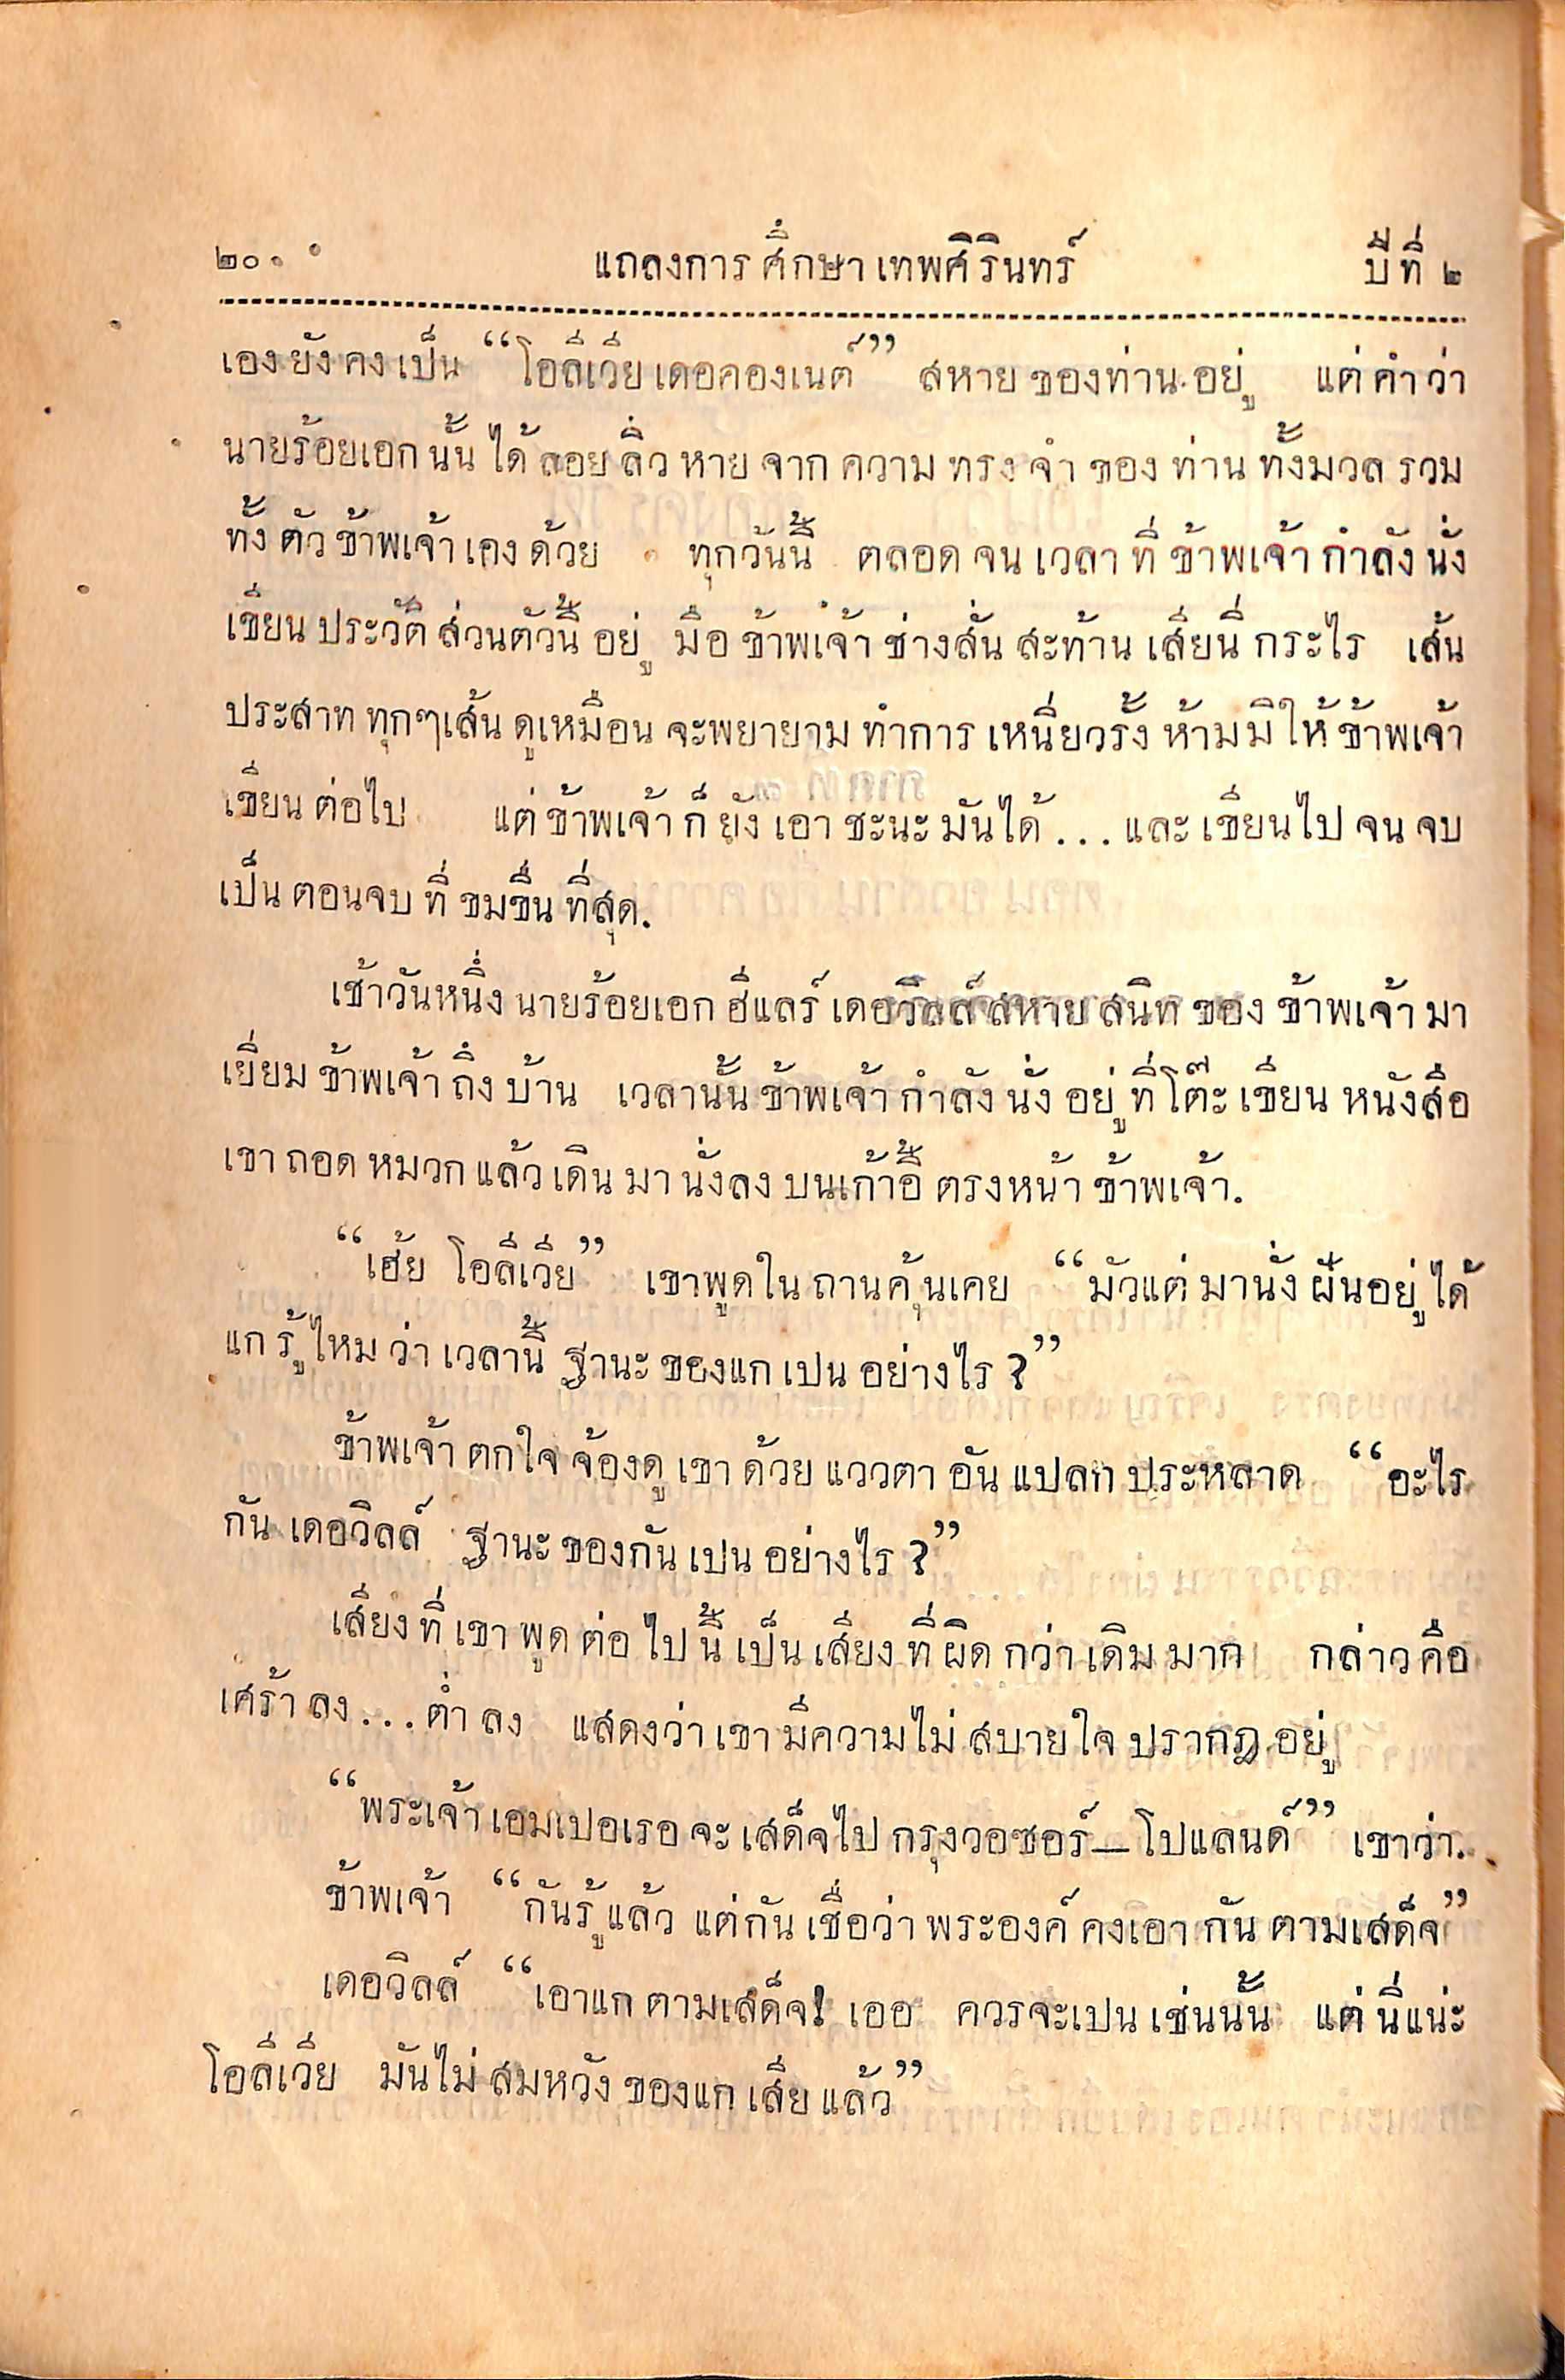 ๒๐๐ แถลงการศึกษาเทพศิรินทร์ ปีที่ ๒
เองยังคงเป็น “โอลิเวีย เดอคองเนต์” สหายของท่านอยู่ แต่คำว่า
นายร้อยเอกนั้นได้ลอยลิ่วหายจากความทรงจำของท่านทั้งมวล รวม
ทั้งตัวข้าพเจ้าเองด้วย ทุกวันนี้ ตลอดจนเวลาที่ข้าพเจ้ากำลังนั่ง
เขียนประวัติส่วนตัวนี้อยู่ มือข้าพเจ้าช่างสั่นสะท้านเสียนี่กระไร เส้น
ประสาททุกๆเส้นดูเหมือนจะพยายามทำการเหนี่ยวรั้งห้ามมิให้ข้าพเจ้า
เขียนต่อไป แต่ข้าพเจ้าก็ยังเอาชะนะมันได้...และเขียนไปจนจบ
เป็นตอนจบที่ขมขื่นที่สุด.
เช้าวันหนึ่ง นายร้อยเอก ฮีแลร์ เดอวิลล์ สหายสนิทของข้าพเจ้ามา
เยี่ยมข้าพเจ้าถึงบ้าน เวลานั้นข้าพเจ้ากำลังนั่งอยู่ที่โต๊ะเขียนหนังสือ
เขาถอดหมวกแล้วเดินมานั่งลงบนเก้าอี้ตรงหน้าข้าพเจ้า.
“เฮ้ย โอลิเวีย” เขาพูดในถานคุ้นเคย “มัวแต่มานั่งฝันอยู่ได้
แกรู้ไหมว่าเวลานี้ ฐานะของแกเปนอย่างไร?”
ข้าพเจ้าตกใจจ้องดูเขาด้วยแววตาอันแปลกประหลาด “อะไร
กัน เดอวิลล์ ฐานะของกันเปนอย่างไร?”
เสียงที่เขาพูดต่อไปนี้เป็นเสียงที่ผิดกว่าเดิมมาก กล่าวคือ
เศร้าลง...ต่ำลง แสดงว่าเขามีความไม่สบายใจปรากฎอยู่
“พระเจ้าเอมเปอเรอจะเสด็จไปกรุงวอซอร์—โปแลนด์” เขาว่า.
ข้าพเจ้า “กันรู้แล้ว แต่กันเชื่อว่าพระองค์คงเอากันตามเสด็จ”
เดอวิลล์ “เอาแกตามเสด็จ! เออ ควรจะเปนเช่นนั้น แต่นี่แน่ะ
โอลิเวีย มันไม่สมหวังของแกเสียแล้ว”